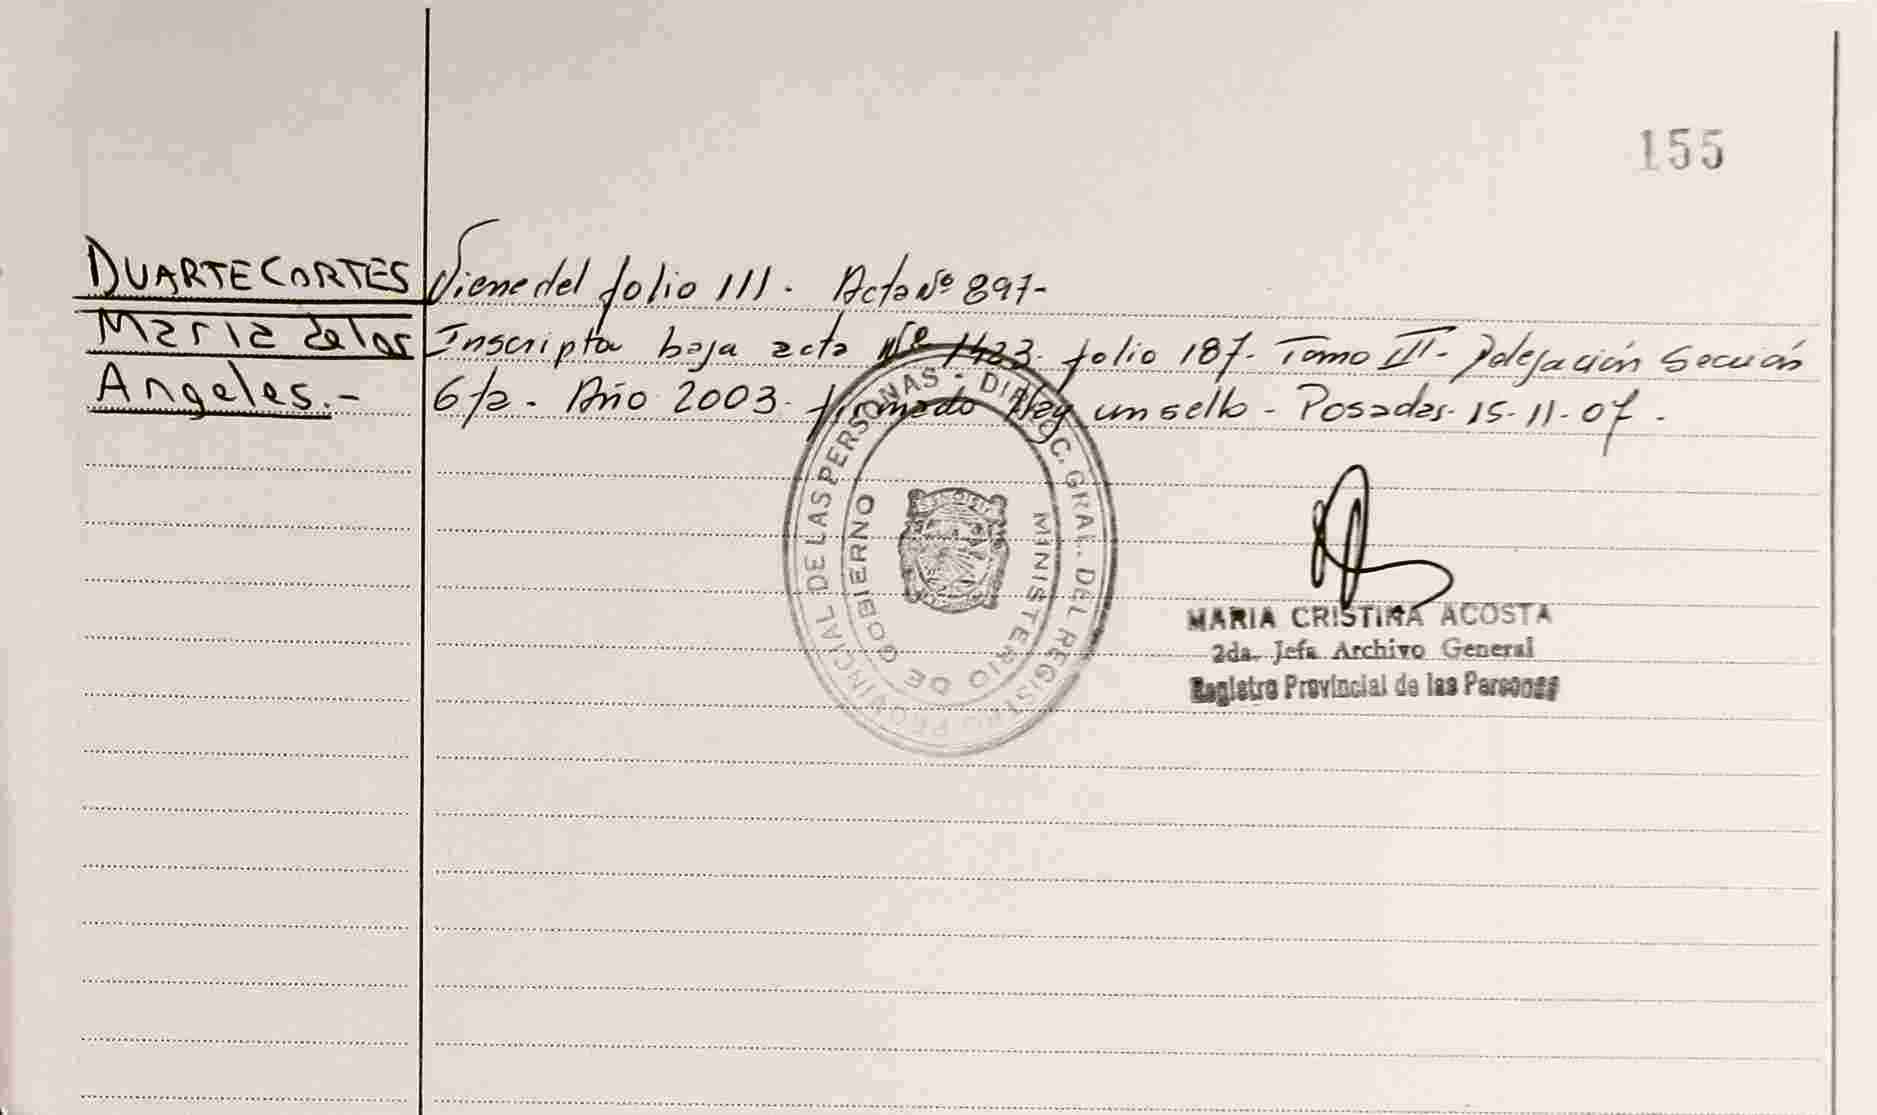 155
DUARTE CORTES
Maria de los
Angeles.-
Viene del folio 111. Acta Nº 897-
Inscripta baja acta Nº 1423. folio 187- Tomo III- Delegación Sección
6ta- Año 2003- firmado Hay un sello - Posadas- 15-11-07.
DIRECC. GRAL. DEL REGISTRO PROVINCIAL DE LAS PERSONAS -
MINISTERIO DE GOBIERNO
MARIA CRISTINA ACOSTA
2da. Jefa Archivo General
Registro Provincial de las Personas